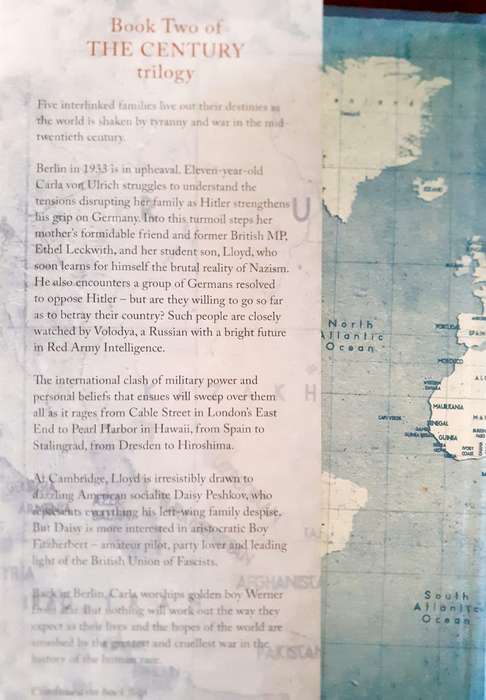 Book Two of
THE CENTURY
trilogy
Five interlinked families live out their destinies as
the world is shaken by tyranny and war in the mid
twentieth century.
Berlin in 1933 is in upheaval. Eleven-year-old
Carla von Ulrich struggles to understand the
tensions disrupting her family as Hitler strengthens
his grip on Germany. Into this turmoil steps her
mother's formidable friend and former British MP,
Ethel Leckwith, and her student son, Lloyd, who
soon learns for himself the brutal reality of Nazism.
He also encounters a group of Germans resolved
to oppose Hitler – but are they willing to go so far
as to betray their country? Such people are closely
watched by Volodya, a Russian with a bright future
in Red Army Intelligence.
The international clash of military power and
personal beliefs that ensues will sweep over them
all as it rages from Cable Street in London's East
End to Pearl Harbor in Hawaii, from Spain to
Stalingrad, from Dresden to Hiroshima.
At Cambridge, Lloyd is irresistibly drawn to
dazzling American socialite Daisy Peshkov, who
represents everything his left-wing family despise.
But Daisy is more interested in aristocratic Boy
Fitzherbert – amateur pilot, party lover and leading
light of the British Union of Fascists.
Back in Berlin, Carla worships golden boy Werner
from afar. But nothing will work out the way they
expect as their lives and the hopes of the world are
smashed by the greatest and cruellest war in the
history of the human race.
U
K H
AFGHANISTA
PAKISTAN
ICELAND
North
Atlantic
Ocean
PORTUGAL
SPAIN
MOROCCO
WESTERN
SAHARA
MAURITANIA
CAPE VERDE
SENEGAL
GUINEA BISSAU
GUINEA
SIERRA
LEONE
IVORY
COAST
South
Atlantic
Ocean